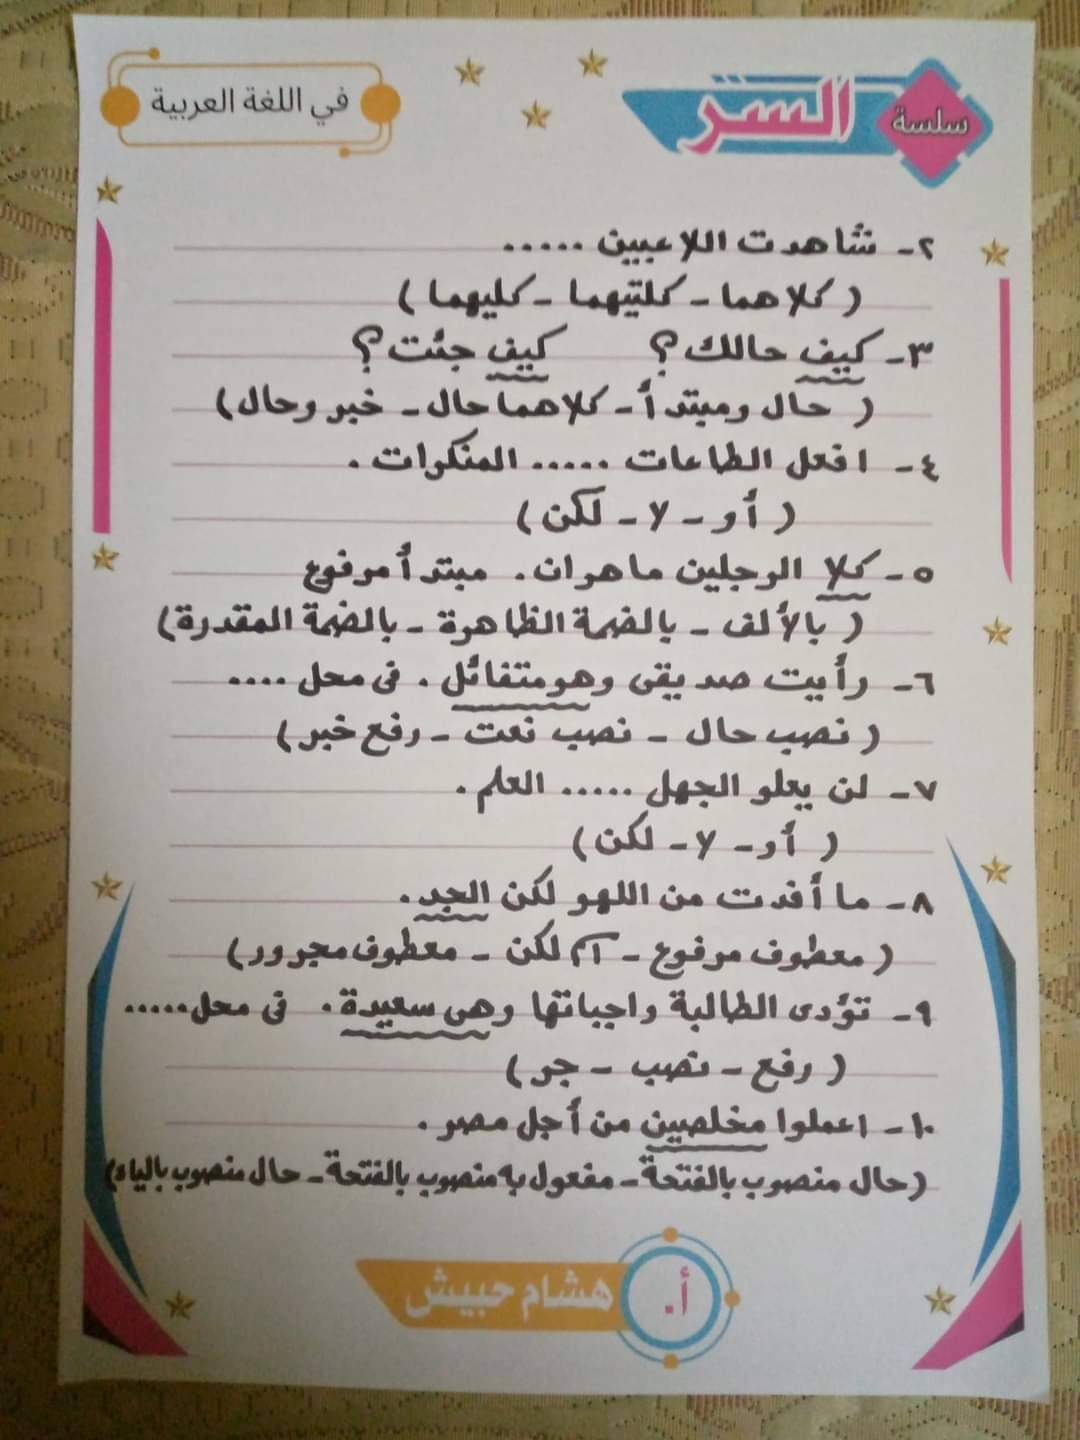 سلسة السر
في اللغة العربية
٢- شاهدت اللاعبين .....
( كلاهما - كلتيهما - كليهما )
٣- كيف حالك ؟ كيف جئت ؟
( حال ومبتدأ - كلاهما حال - خبر وحال )
٤- افعل الطاعات ..... المنكرات .
( أو - لا - لكن )
٥- كلا الرجلين ماهران . مبتدأ مرفوع
( بالألف - بالضمة الظاهرة - بالضمة المقدرة )
٦- رأيت صديقى وهو متفائل . فى محل ....
( نصب حال - نصب نعت - رفع خبر )
٧- لن يعلو الجهل ..... العلم .
( أو - لا - لكن )
٨- ما أفدت من اللهو لكن الجد .
( معطوف مرفوع - اسم لكن - معطوف مجرور )
٩- تؤدى الطالبة واجباتها وهى سعيدة . فى محل .....
( رفع - نصب - جر )
١٠- اعملوا مخلصين من أجل مصر .
( حال منصوب بالفتحة - مفعول به منصوب بالفتحة - حال منصوب بالياء )
أ. هشام حبيش